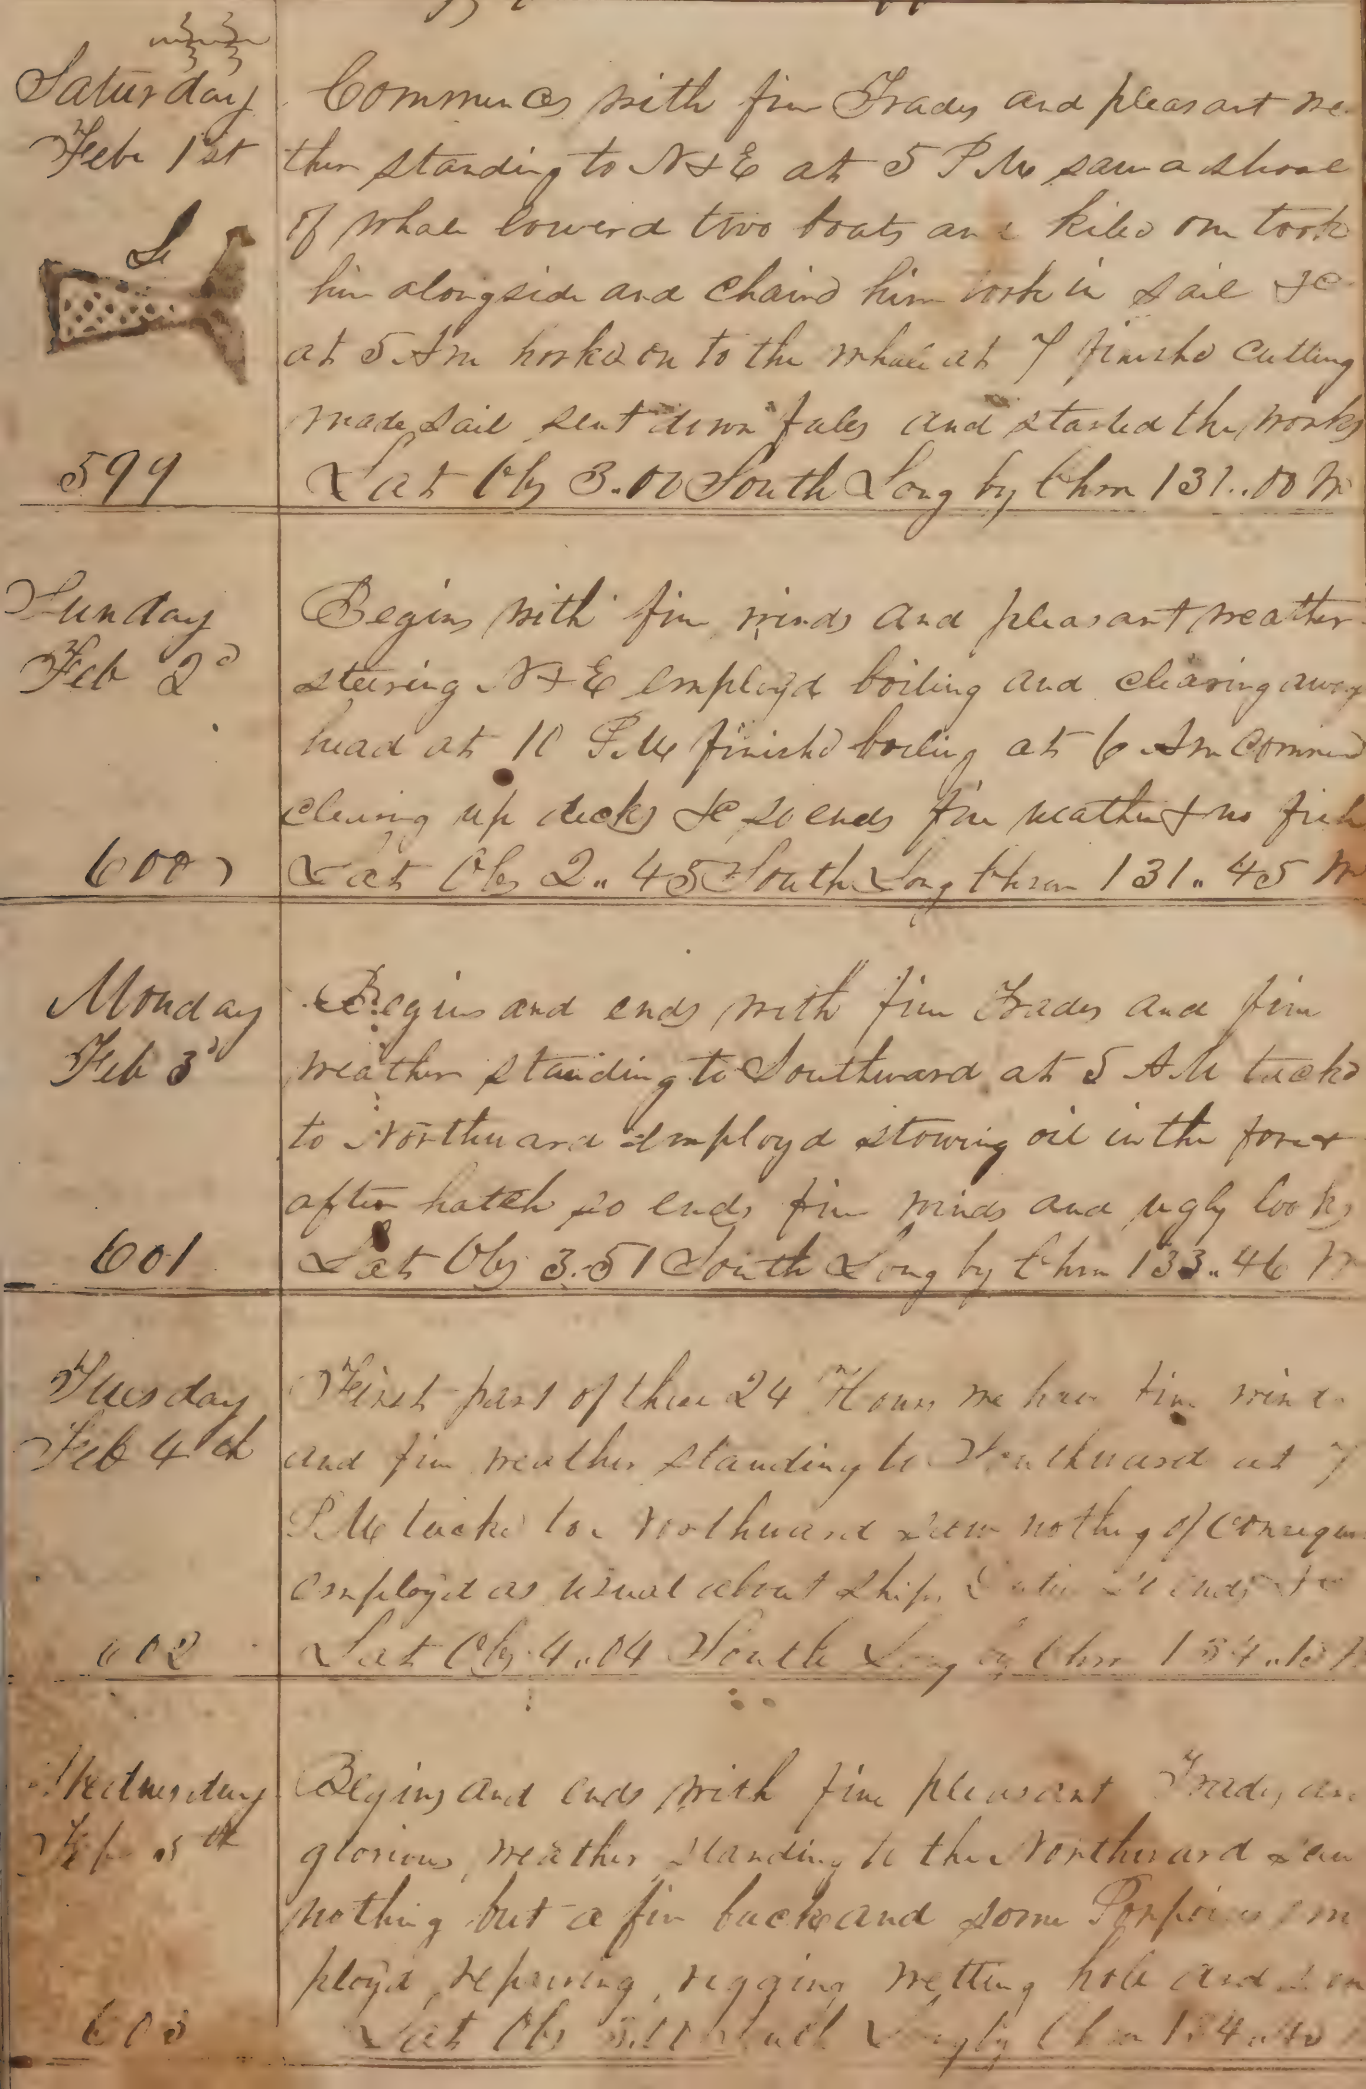 Saturday
Febr 1st
S
599
Commences with fine Trades and pleasant wea
ther standing to N & E at 5 PM saw a shoal
of whale lowerd two boats and kild one took
him alongside and chaind him took in sail &c
at 5 Am hooked on to the whale at 7 finishd cutting
made sail sent down fales and started the works
Lat Obs 3.00 South Long by Chrn 131..00 W
Sunday
Feb 2d
600
Begins with fine winds and pleasant weather
steering N & E employd boiling and clearing away
head at 10 PM finishd boiling at 6 Am commend
clearing up decks &c so ends fine weather & no fish
Lat Obs 2.. 45 South Long Chrn 131.. 45 W
Monday
Feb 3d
601
Begins and ends with fine Trades and fine
weather standing to Southward at 5 AM tackd
to Northward Employd stowing oil in the fore &
after hatch so ends fine winds and ugly looks
Lat Obs 3.51 South Long by Chrn 133..46 W
Tuesday
Feb 4th
602
First part of these 24 Hours we have fine wind
and fine weather standing to Southward at 7
PM tackd to Northward saw nothing of consequen
employd as usual about ships so ends &c
Lat Obs 4..04 South Long by Chrn
Wednesday
Feb 5th
603
Begins and ends with fine pleasant Trades and
glorious weather standing to the Northward saw
nothing but a fin back and some Porpoises em
ployd repairing rigging wetting hold and
Lat Obs Long by Chrn